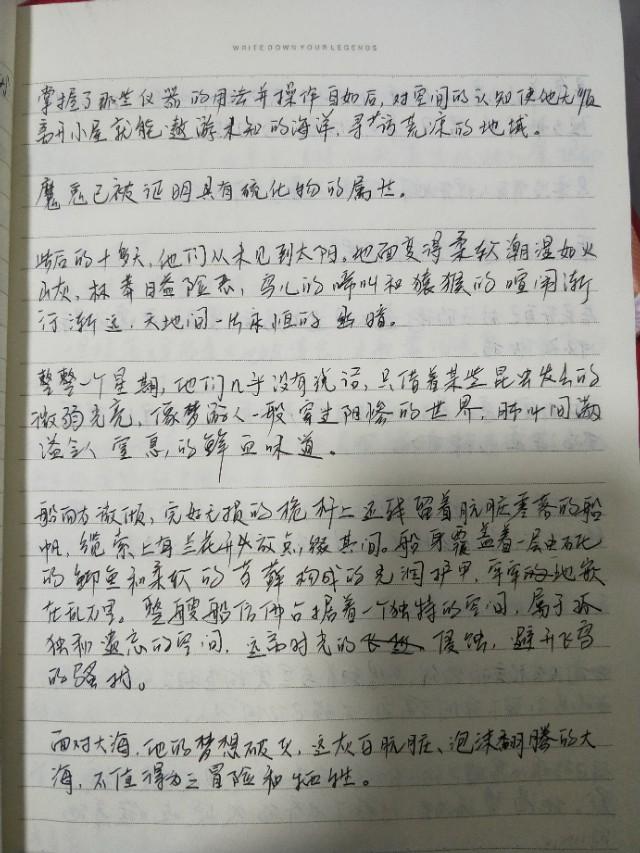 WRITE DOWN YOUR LEGENDS
掌握了那些仪器的用法并操作自如后，对空间的认知使他无须
离开小屋就能遨游未知的海洋，寻访荒凉的地域。
魔鬼已被证明具有硫化物的属性。
此后的十多天，他们从未见到太阳。地面变得柔软潮湿如火
山灰，林莽日益险恶，鸟儿的啼叫和猿猴的喧闹渐
行渐远，天地间一片永恒的幽暗。
整整一个星期，他们几乎没有说话，只借着某些昆虫发出的
微弱光亮，像梦游人一般穿过阴惨的世界，肺叶间满
溢令人窒息的鲜血味道。
船向右微倾，完好无损的桅杆上还残留着肮脏零落的船
帆，缆索上有兰花开放点缀其间。船身覆盖着一层由石化
的鲫鱼和柔软的苔藓构成的光润护甲，牢牢地嵌
在乱石里。整艘船仿佛占据着一个独特的空间，属于孤
独和遗忘的空间，远离时光的侵蚀，避开飞鸟
的骚扰。
面对大海，他的梦想破灭，这灰白肮脏、泡沫翻腾的大
海，不值得为之冒险和牺牲。